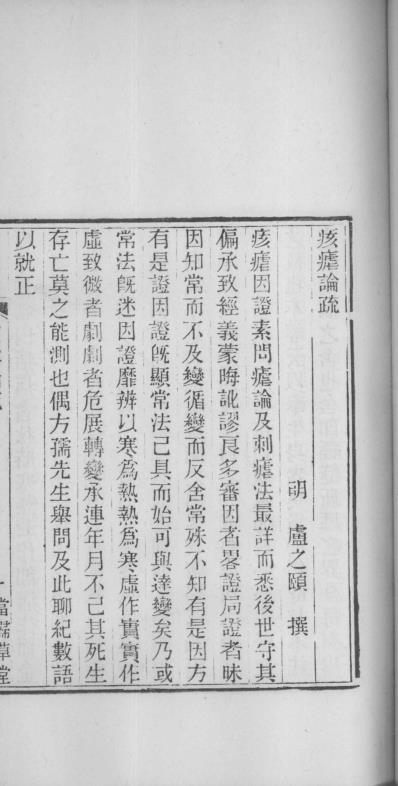 痎瘧論疏
明 盧之頤 撰
痎瘧因證素問瘧論及刺瘧法最詳而悉後世守其
偏承致經義蒙晦訛謬良多審因者畧證局證者昧
因知常而不及變循變而反舍常殊不知有是因方
有是證因證旣顯常法已具而始可與達變矣乃或
常法旣迷因證靡辨以寒爲熱熱爲寒虛作實實作
虛致微者劇劇者危展轉變承連年月不已其死生
存亡莫之能測也偶方孺先生舉問及此聊紀數語
以就正
當歸草堂